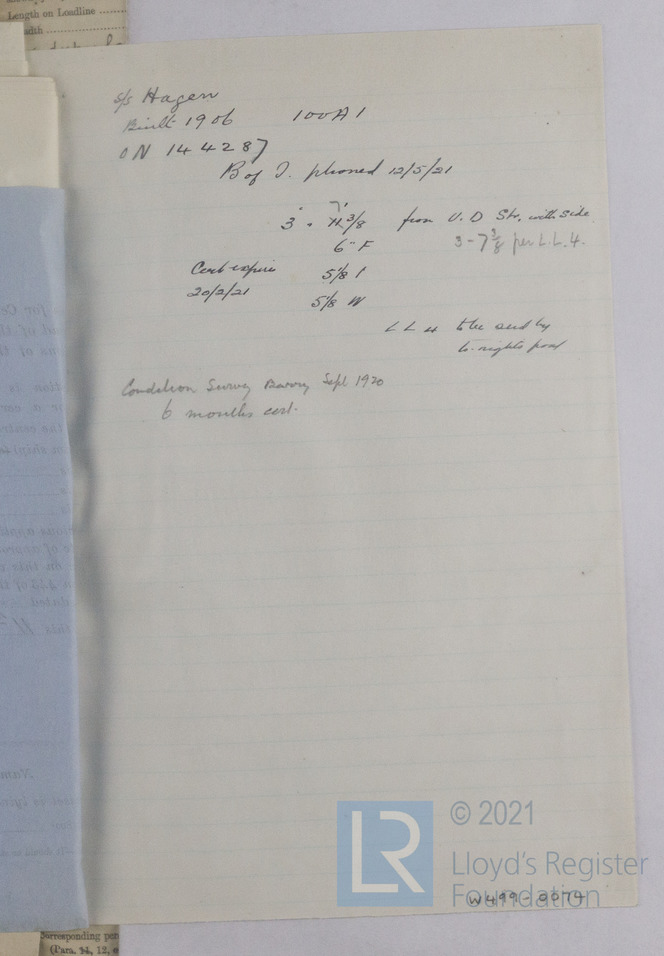 Length on Loadline ........
s/s Hagen
Built 1906 100A1
ON 144287
B of T. phoned 12/5/21
3' . 7' 3/8 from U.D Str. with side
6" F 3-7 3/8 per L.L.4.
Cert expires 5 1/8 I
20/2/21
5 1/8 W
LL 4 to be by
Condition Survey Barry Sept 1920
6 months cert.
© 2021
LR
Lloyd's Register
Foundation
W499-0074
Corresponding
(Para. 11, 12,